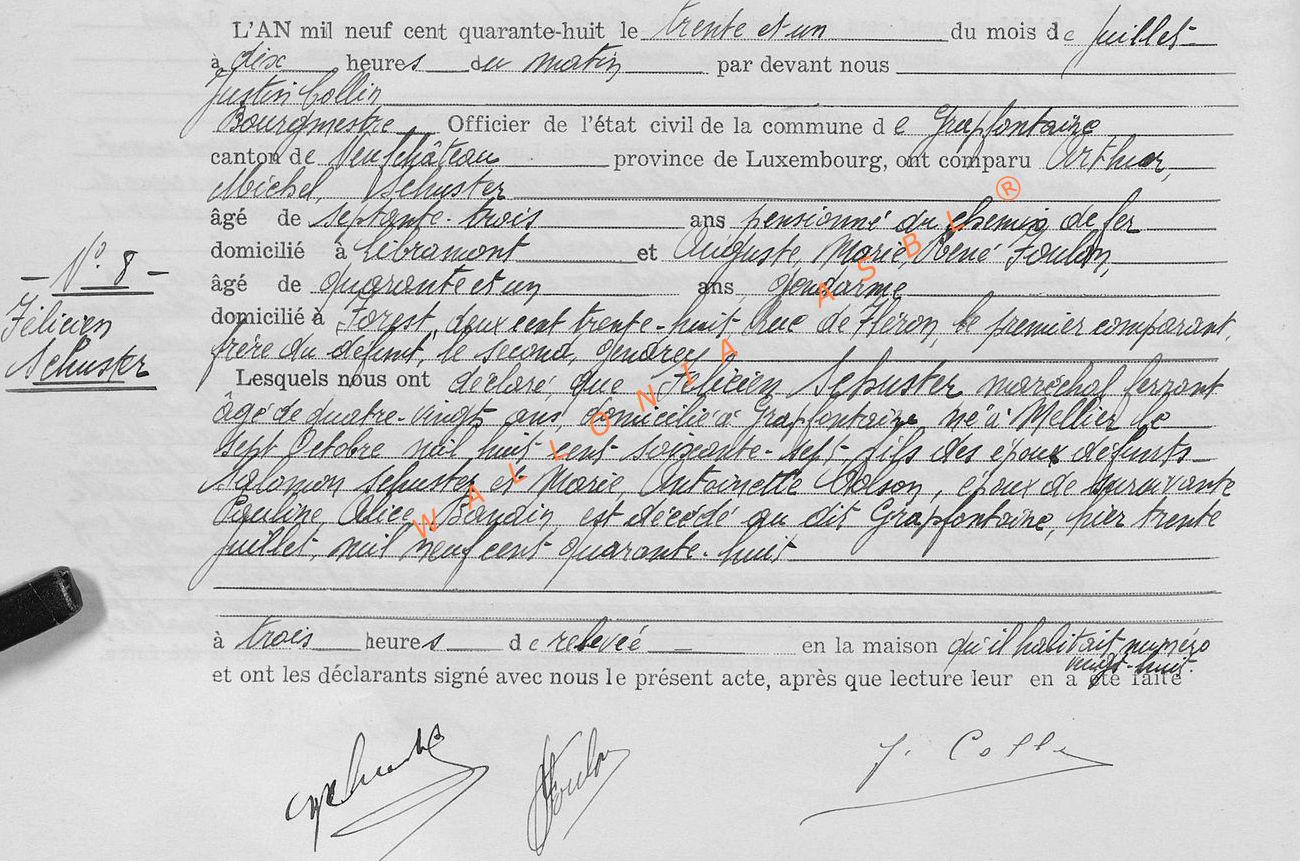 L'AN mil neuf cent quarante-huit le trente et un du mois de juillet
à dix heures du matin par devant nous
Justin Collin
Bourgmestre Officier de l'état civil de la commune de Grapfontaine
canton de Neufchâteau province de Luxembourg, ont comparu Arthur,
Michel, Schuster
âgé de septante-trois ans pensionné du chemin de fer
domicilié à Libramont et Auguste, Marie, René Foulon,
- N° 8 -
Félicien
Schuster
âgé de quarante et un ans gendarme
domicilié à Forest, deux cent trente-huit rue de Héron, le premier comparant,
frère du défunt, le second, gendre
Lesquels nous ont déclaré, que Félicien Schuster maréchal ferrant
âgé de quatre-vingts ans, domicilié à Grapfontaine né à Mellier le
sept Octobre mil huit cent soixante-sept fils des époux défunts
Salomon Schuster et Marie, Antoinette Colson, époux de survivante
Pauline, Alice, Baudin, est décédé au dit Grapfontaine, hier trente
juillet, mil neuf cent quarante-huit
à trois heures de relevée en la maison qu'il habitait, numéro
vingt-huit
et ont les déclarants signé avec nous le présent acte, après que lecture leur en a été faite
Foulon J. Collin
WALLONIA ASBL ®